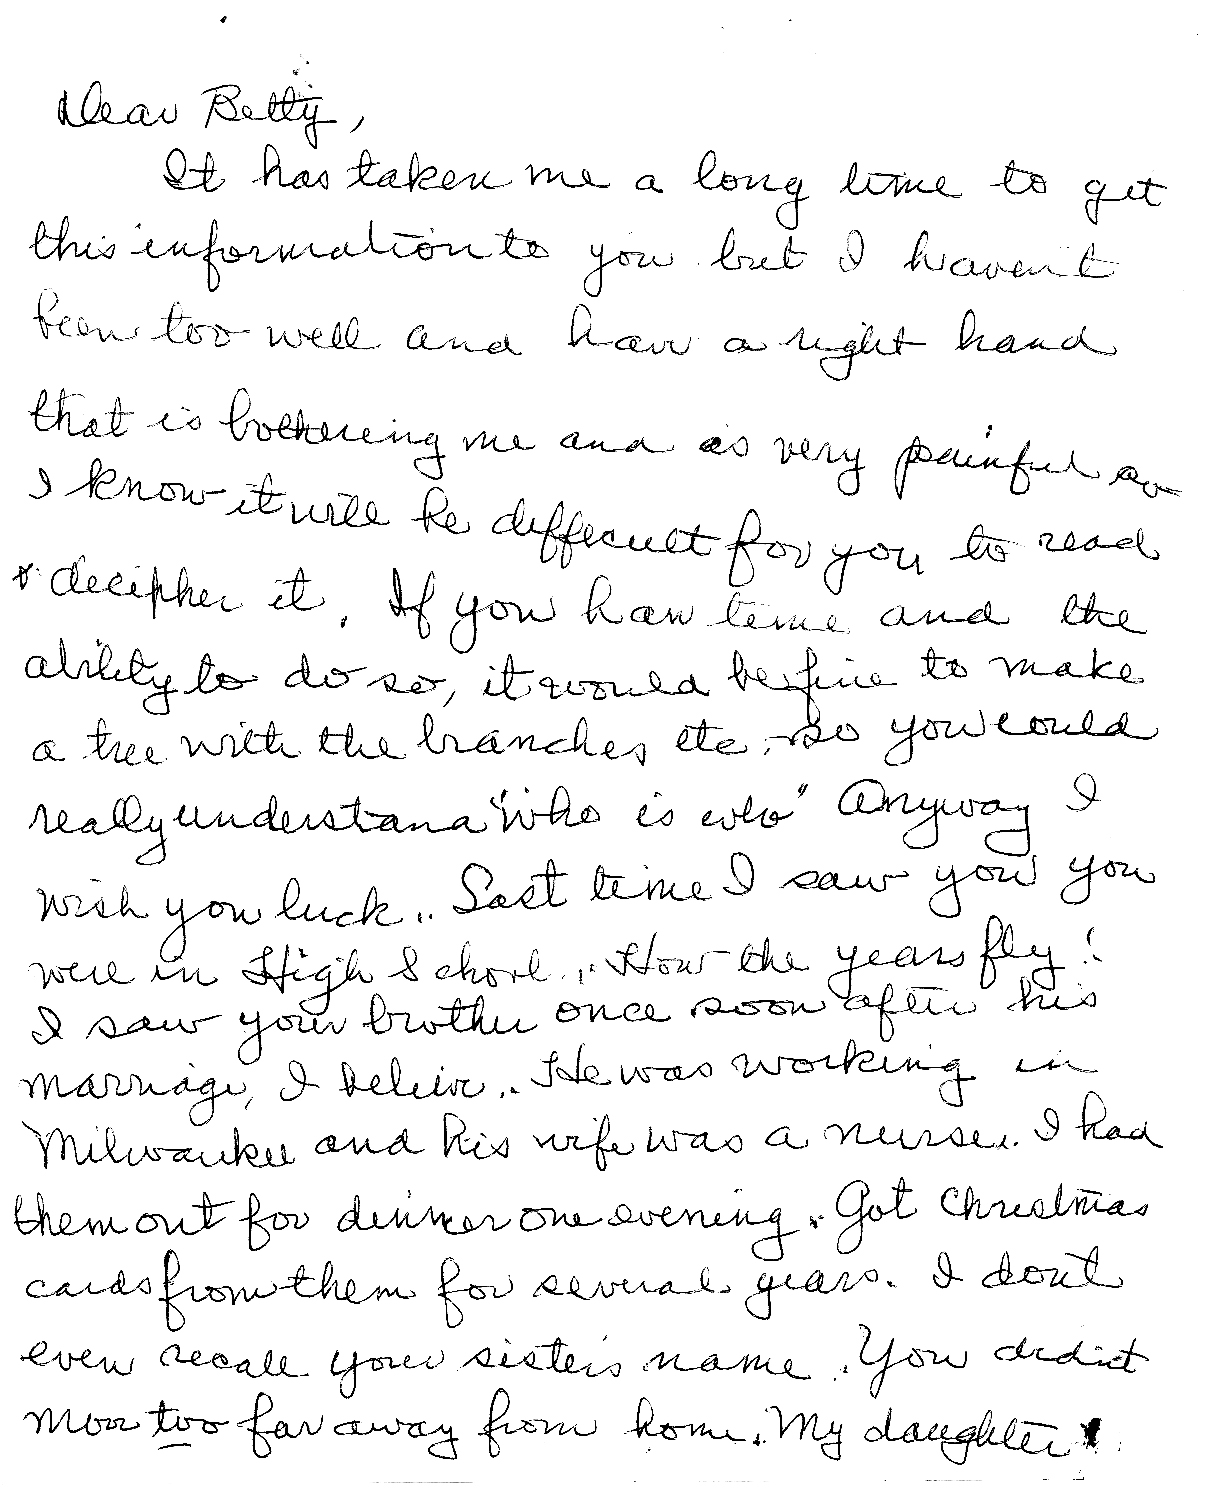 Dear Betty,
It has taken me a long time to get
this information to you but I haven't
been too well and have a right hand
that is bothering me and is very painful so
I know it will be difficult for you to read
& decipher it. If you have time and the
ability to do so, it would be fine to make
a tree with the branches etc. so you could
really understand "who is who" Anyway I
wish you luck.. Last time I saw you you
were in High School... How the years fly!
I saw your brother once soon after his
marriage, I believe.. He was working in
Milwaukee and his wife was a nurse.. I had
them out for dinner one evening. Got Christmas
cards from them for several years. I don't
even recall your sisters name. You didn't
move too far away from home. My daughter